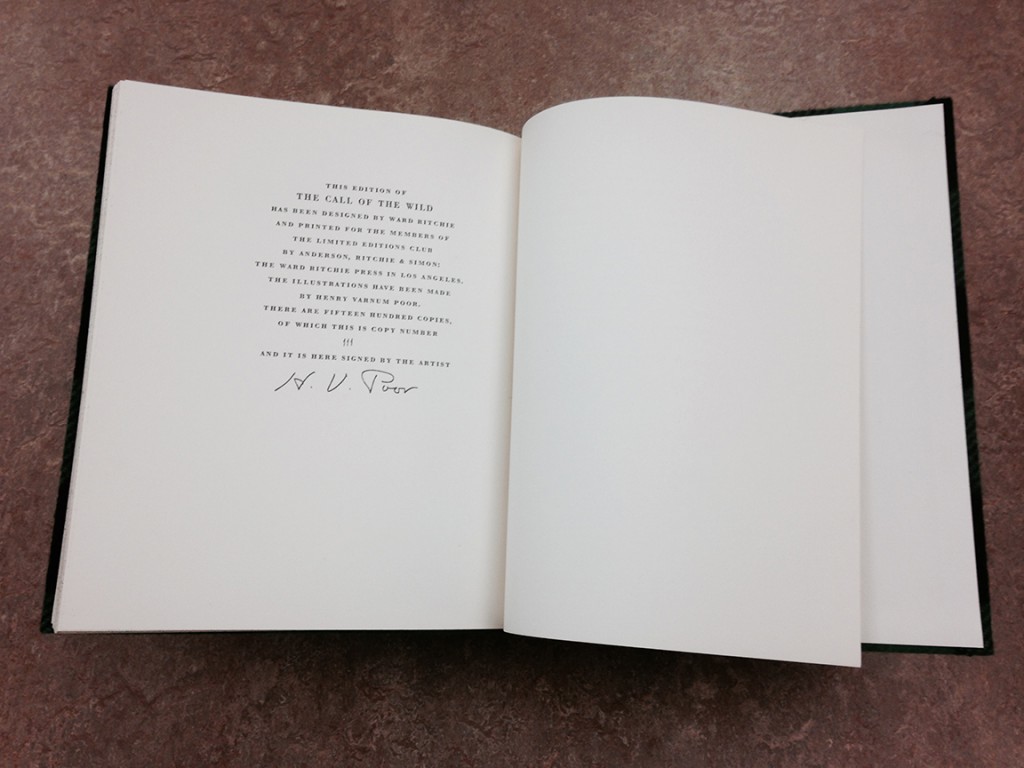 THIS EDITION OF
THE CALL OF THE WILD
HAS BEEN DESIGNED BY WARD RITCHIE
AND PRINTED FOR THE MEMBERS OF
THE LIMITED EDITIONS CLUB
BY ANDERSON, RITCHIE & SIMON:
THE WARD RITCHIE PRESS IN LOS ANGELES.
THE ILLUSTRATIONS HAVE BEEN MADE
BY HENRY VARNUM POOR.
THERE ARE FIFTEEN HUNDRED COPIES,
OF WHICH THIS IS COPY NUMBER
AND IT IS HERE SIGNED BY THE ARTIST
H. V. Poor